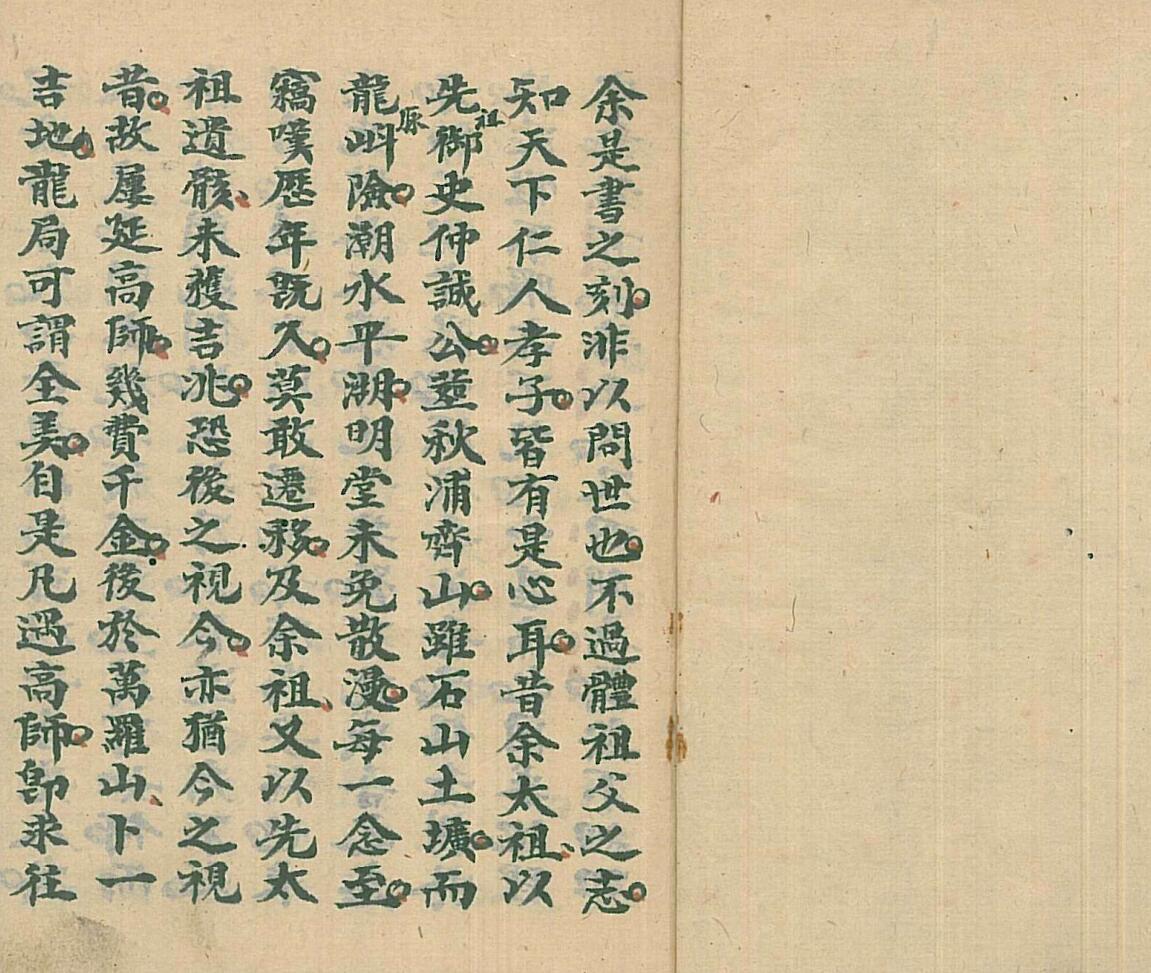 余是書之刻非以問世也不過體祖父之志
知天下仁人孝子皆有是心耳昔余太祖以
先祖御史仲誠公塟秋浦齊山雖石山土壙而
龍脉險潮水平湖明堂未免散漫每一念至
竊嘆歷年既久莫敢遷移及余祖又以先太
祖遺骸未獲吉兆恐後之視今亦猶今之視
昔故屢延高師幾費千金後於萬羅山卜一
吉地龍局可謂全美自是凡遇高師卽求往